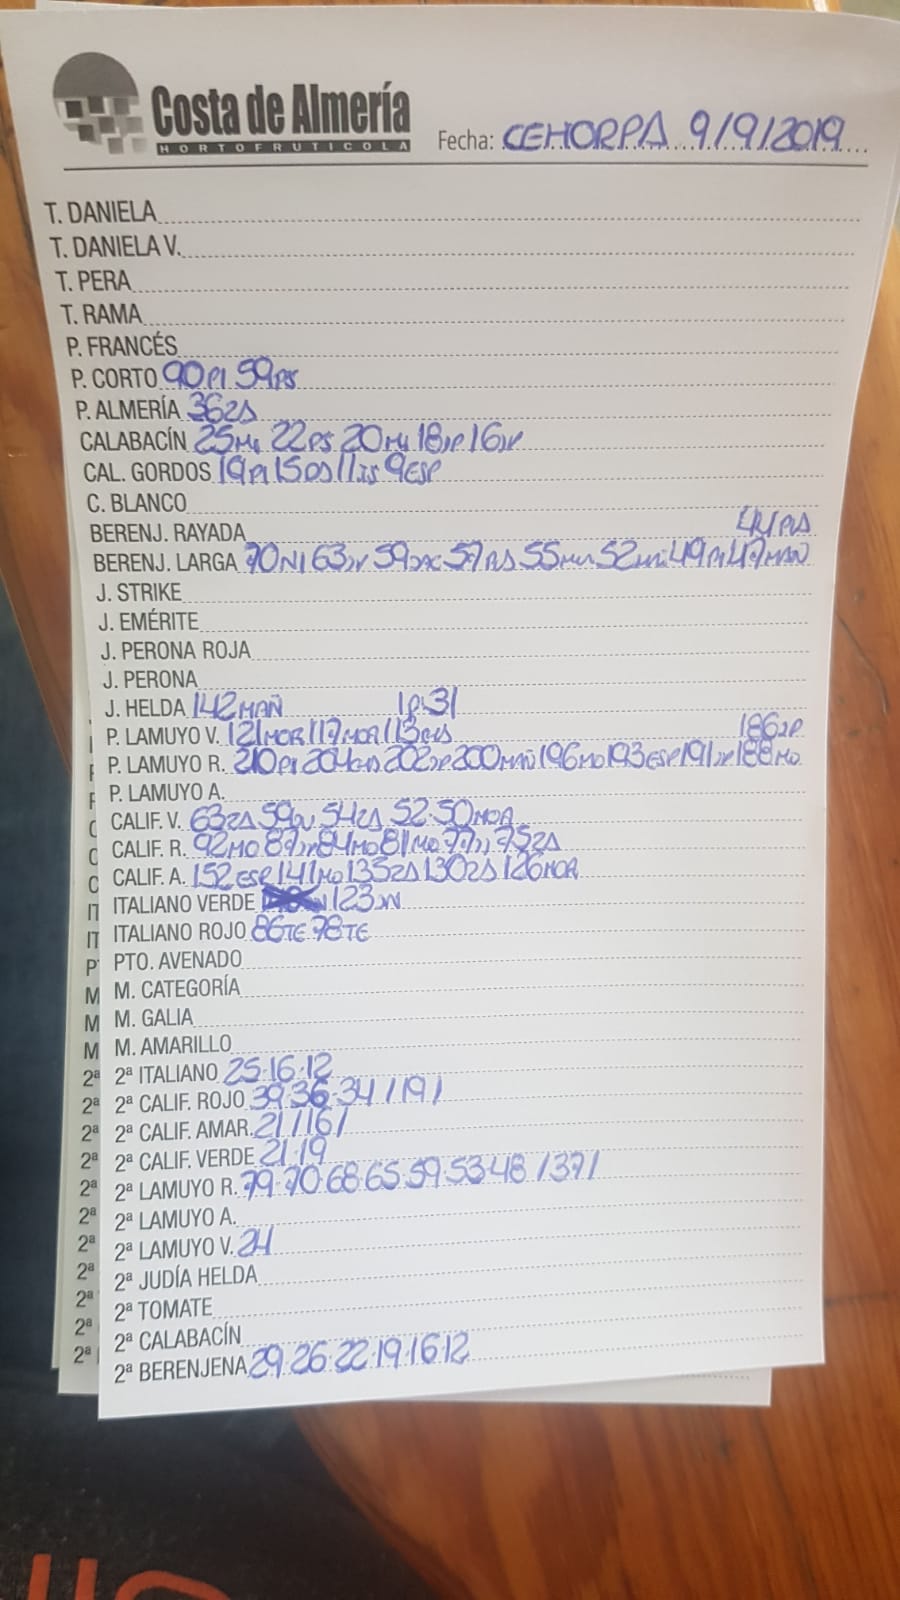 Costa de Almería
HORTOFRUTICOLA
Fecha: CEHORPA 9/9/2019
T. DANIELA
T. DANIELA V.
T. PERA
T. RAMA
P. FRANCÉS
P. CORTO 90PI 59PS
P. ALMERÍA 36ZA
CALABACÍN 25 22PS 20 18 16
CAL. GORDOS 19PI 15 11 9ESP
C. BLANCO
BERENJ. RAYADA
44
BERENJ. LARGA 70NI 63 59 57 55 52 49PI 47MAÑ
J. STRIKE
J. EMÉRITE
J. PERONA ROJA
J. PERONA
J. HELDA 142MAÑ
P. LAMUYO V. 121MOR 117MOR 113
186JP
P. LAMUYO R. 210PI 204 202JP 200MAÑ 196MO 193ESP 191JP 188MO
P. LAMUYO A.
CALIF. V. 63ZA 59 54ZA 52·50MOR
CALIF. R. 92MO 87 84MO 81MO 77 75ZA
CALIF. A. 152ESP 141MO 135ZA 130ZA 126MOR
ITALIANO VERDE 123JN
ITALIANO ROJO 86TE 78TE
PTO. AVENADO
M. CATEGORÍA
M. GALIA
M. AMARILLO
2ª ITALIANO 25·16·12
2ª CALIF. ROJO 39·36·34/19/
2ª CALIF. AMAR. 21/16/
2ª CALIF. VERDE 21·19
2ª LAMUYO R. 79·70·68·65·59·53·48/37/
2ª LAMUYO A.
2ª LAMUYO V. 24
2ª JUDÍA HELDA
2ª TOMATE
2ª CALABACÍN
2ª BERENJENA 29·26·22·19·16·12